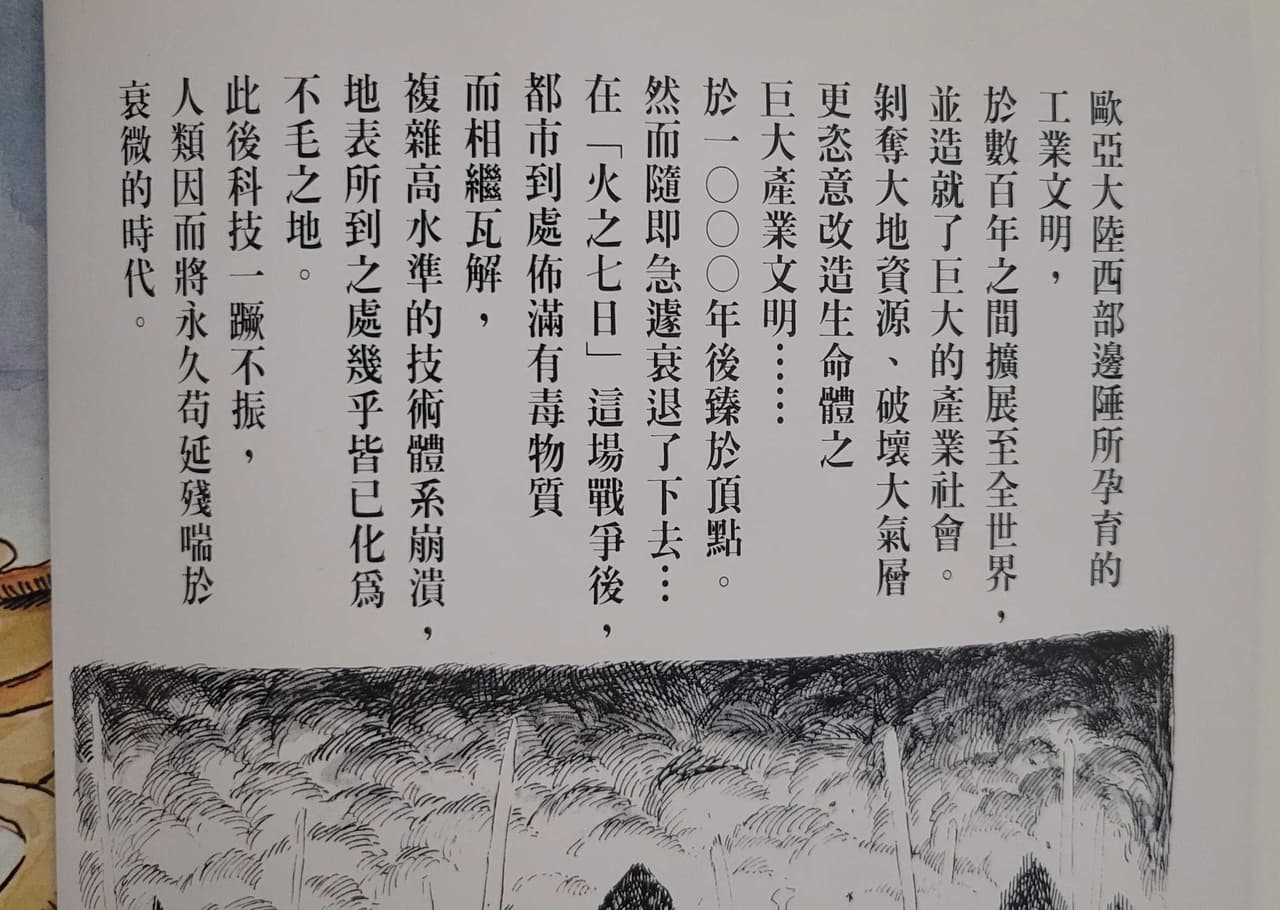 歐亞大陸西部邊陲所孕育的
工業文明，
於數百年之間擴展至全世界，
並造就了巨大的產業社會。
剝奪大地資源、破壞大氣層
更恣意改造生命體之
巨大產業文明……
於一〇〇〇年後臻於頂點。
然而隨即急遽衰退了下去…
在「火之七日」這場戰爭後，
都市到處佈滿有毒物質
而相繼瓦解，
複雜高水準的技術體系崩潰，
地表所到之處幾乎皆已化爲
不毛之地。
此後科技一蹶不振，
人類因而將永久苟延殘喘於
衰微的時代。